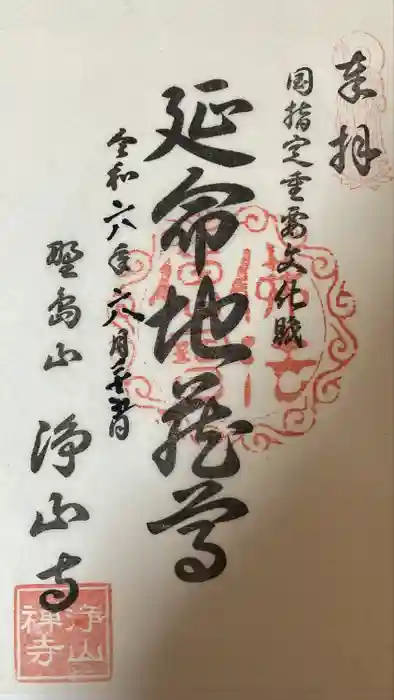 奉拝
国指定重要文化財
延命地蔵尊
令和六年六月
埜島山
浄山寺
浄山
禅寺